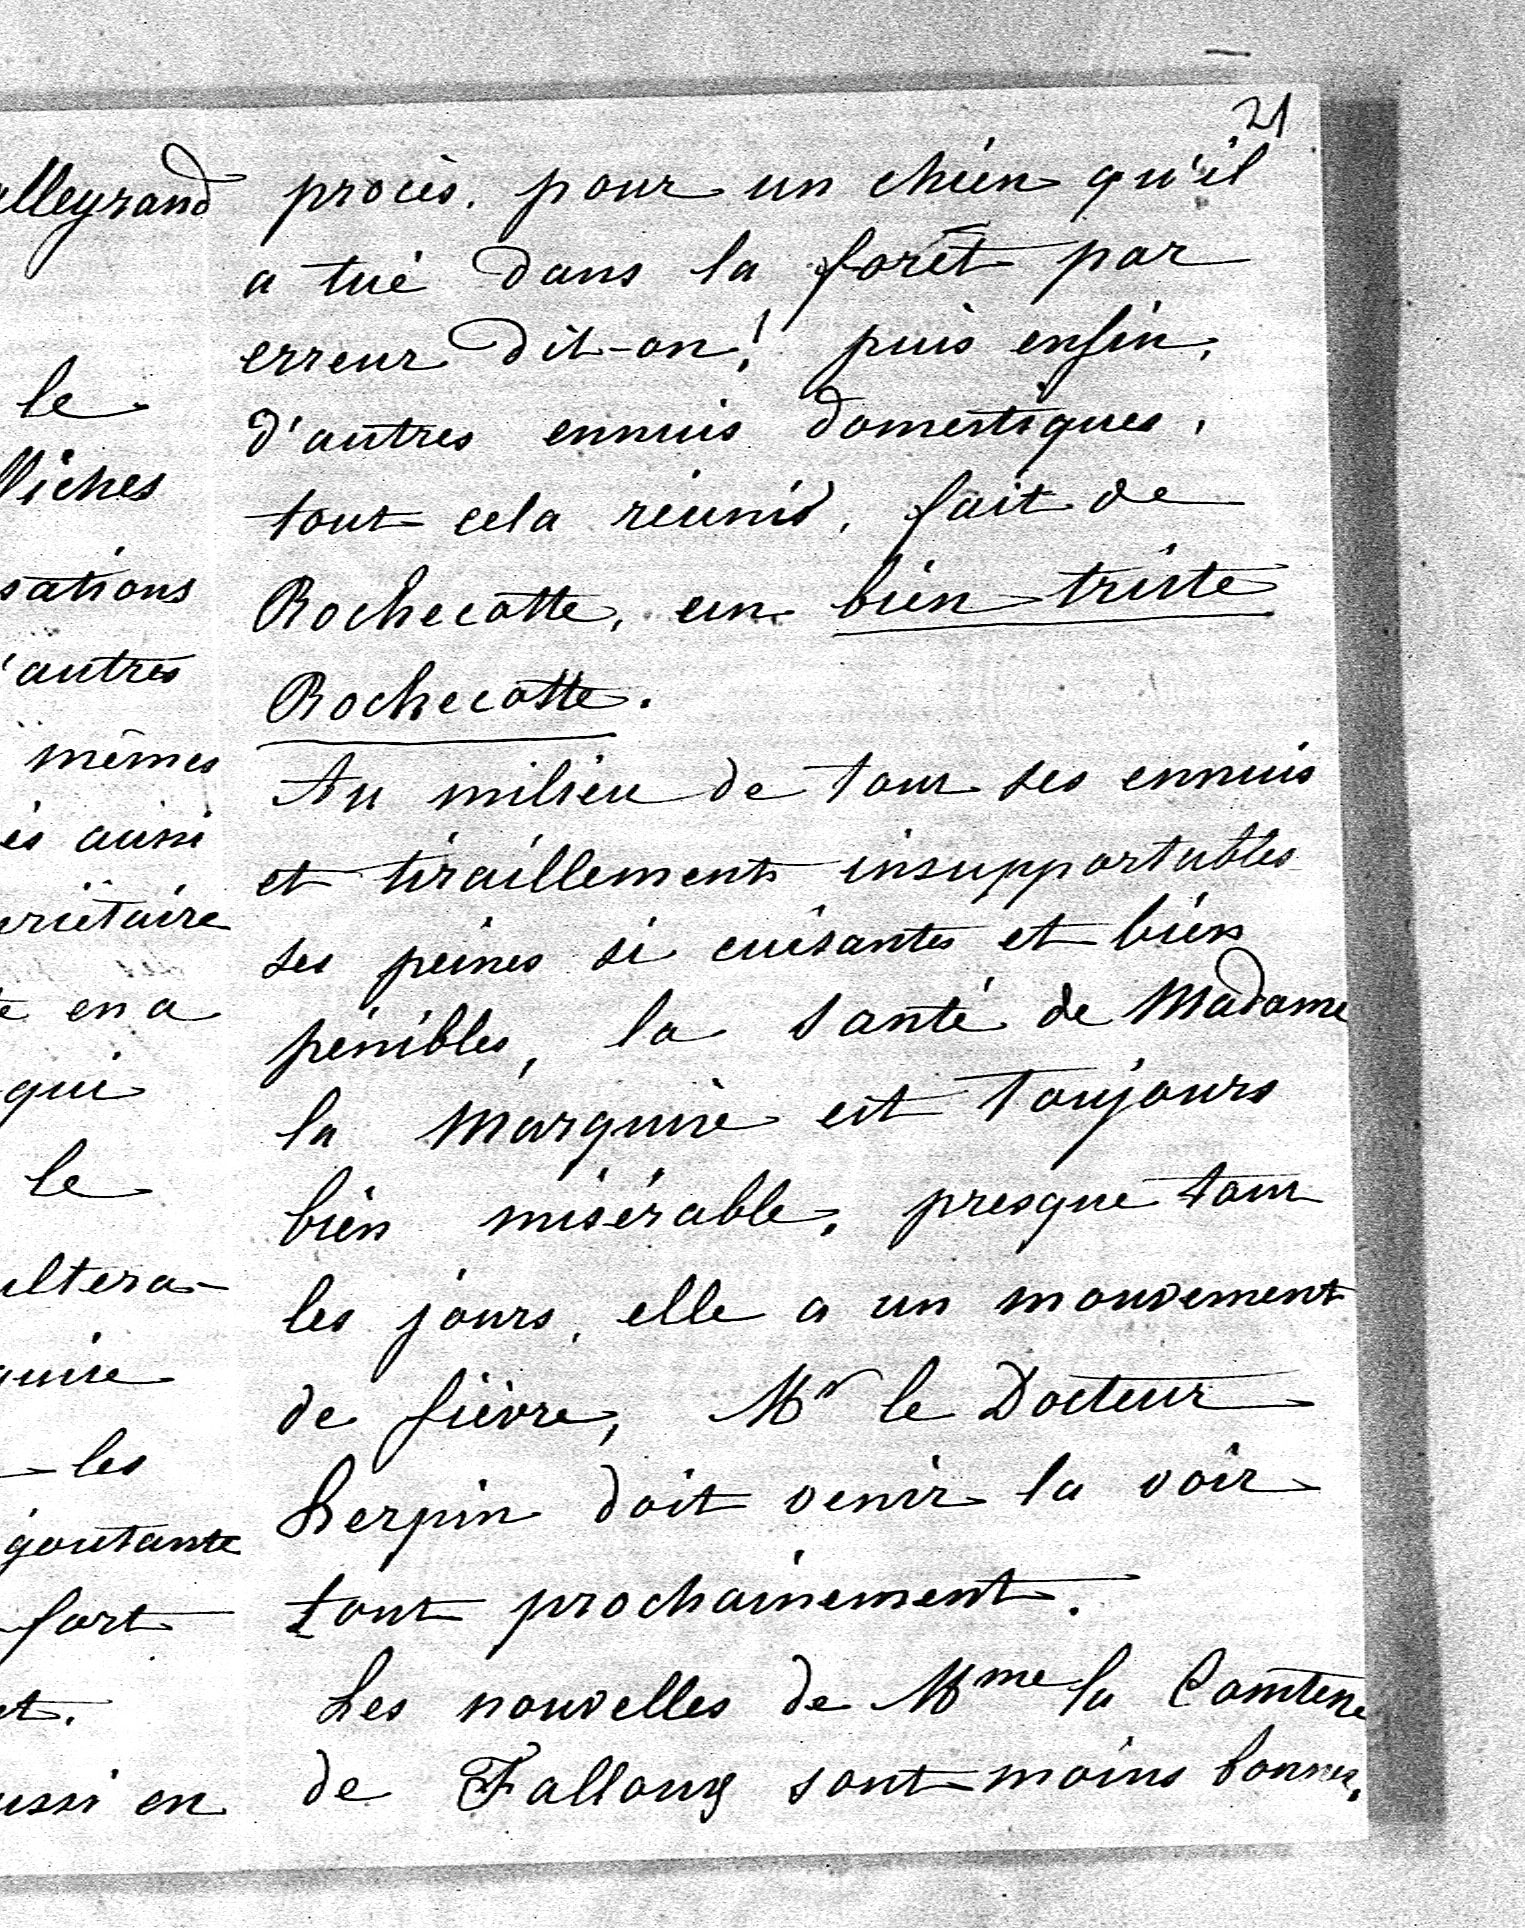 21
procès, pour un chien qu'il
a tué dans la forêt par
erreur dit-on! puis enfin,
d'autres ennuis domestiques,
tout cela réunis, fait de
Rochecotte, un bien triste
Rochecotte.
Au milieu de tous ses ennuis
et tiraillements insupportables
ses peines si cuisantes et bien
pénibles, la santé de Madame
la Marquise est toujours
bien misérable, presque tous
les jours, elle a un mouvement
de fièvre, Mr le Docteur
Herpin doit venir la voir
tout prochainement.
Les nouvelles de Mme la Comtesse
de Falloux sont moins bonnes.
alleyrand
le
sations
'autres
mêmes
és aussi
priétaire
en a
qui
le
ultera-
quise
les
goutante
fort
et.
ussi en